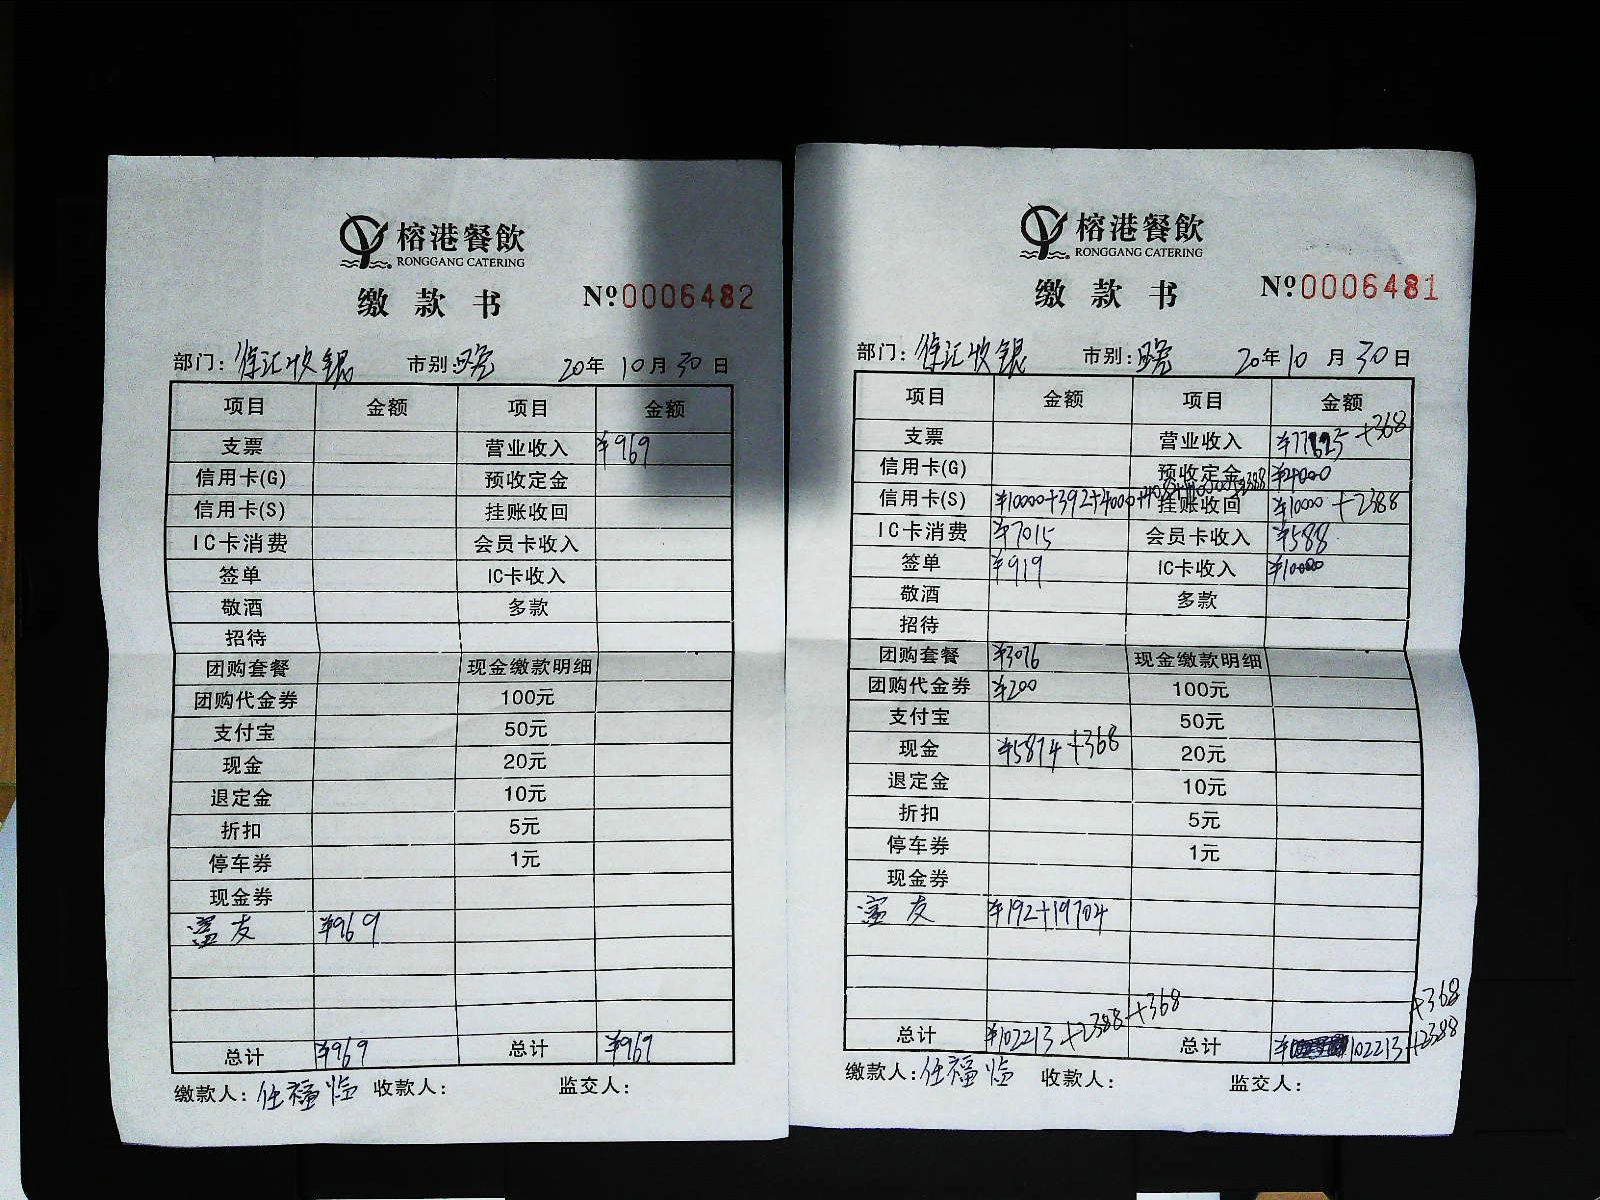 榕港餐飲
RONGGANG CATERING
缴款书 Nº0006482
部门：徐汇收银 市别： 20年10月30日
项目 金额 项目 金额
支票 营业收入 ¥969
信用卡(G) 预收定金
信用卡(S) 挂账收回
IC卡消费 会员卡收入
签单 IC卡收入
敬酒 多款
招待
团购套餐 现金缴款明细
团购代金券 100元
支付宝 50元
现金 20元
退定金 10元
折扣 5元
停车券 1元
现金券
富友 ¥969
总计 ¥969 总计 ¥969
缴款人：任福临 收款人： 监交人：
榕港餐飲
RONGGANG CATERING
缴款书 Nº0006481
部门：徐汇收银 市别： 20年10月30日
项目 金额 项目 金额
支票 营业收入 +368
信用卡(G) 预收定金
信用卡(S) ¥10000+392+4000+ 挂账收回 ¥10000+2388
IC卡消费 ¥7015 会员卡收入 ¥588
签单 ¥919 IC卡收入 ¥10000
敬酒 多款
招待
团购套餐 ¥3076 现金缴款明细
团购代金券 ¥200 100元
支付宝 50元
现金 ¥5874+368 20元
退定金 10元
折扣 5元
停车券 1元
现金券
富友 ¥192+19704
总计 ¥102213+2388+368 总计 102213+2388+368
缴款人：任福临 收款人： 监交人：